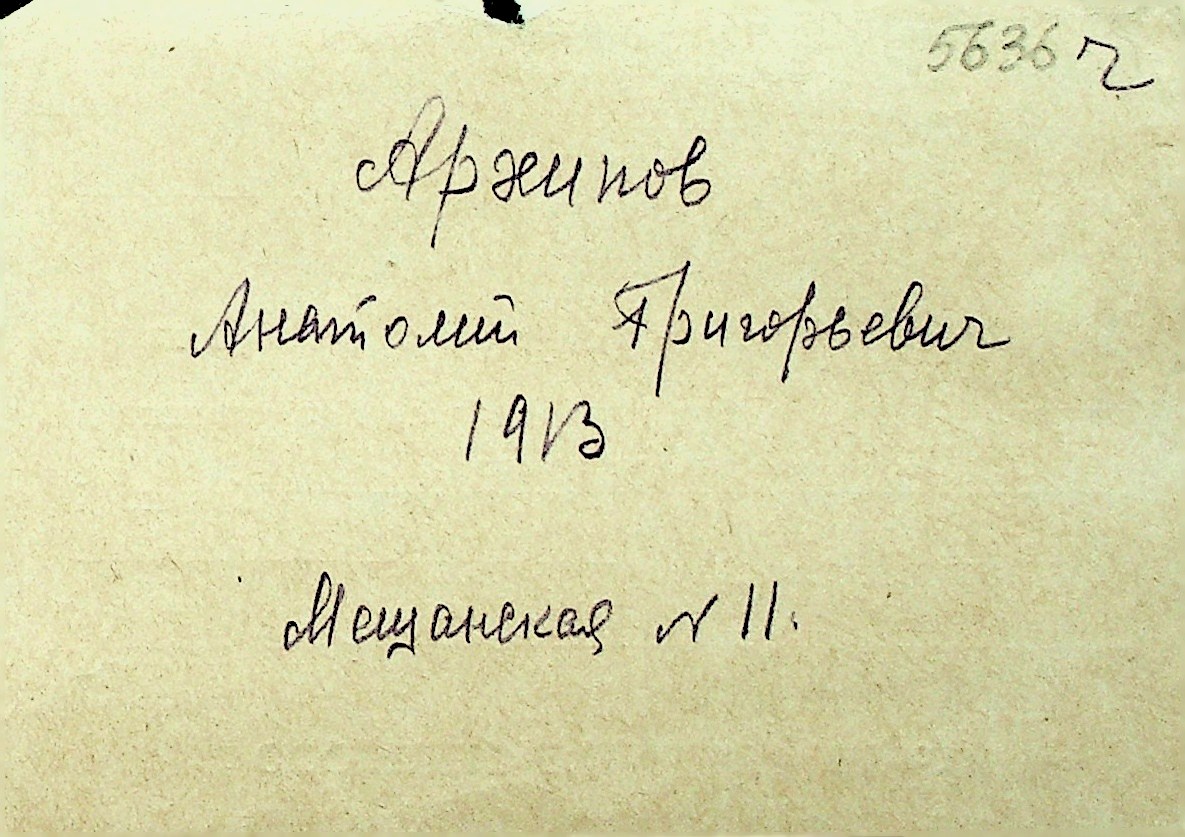 5636 ч
Архипов
Анатолий Григорьевич
1913
Мещанская N 11.